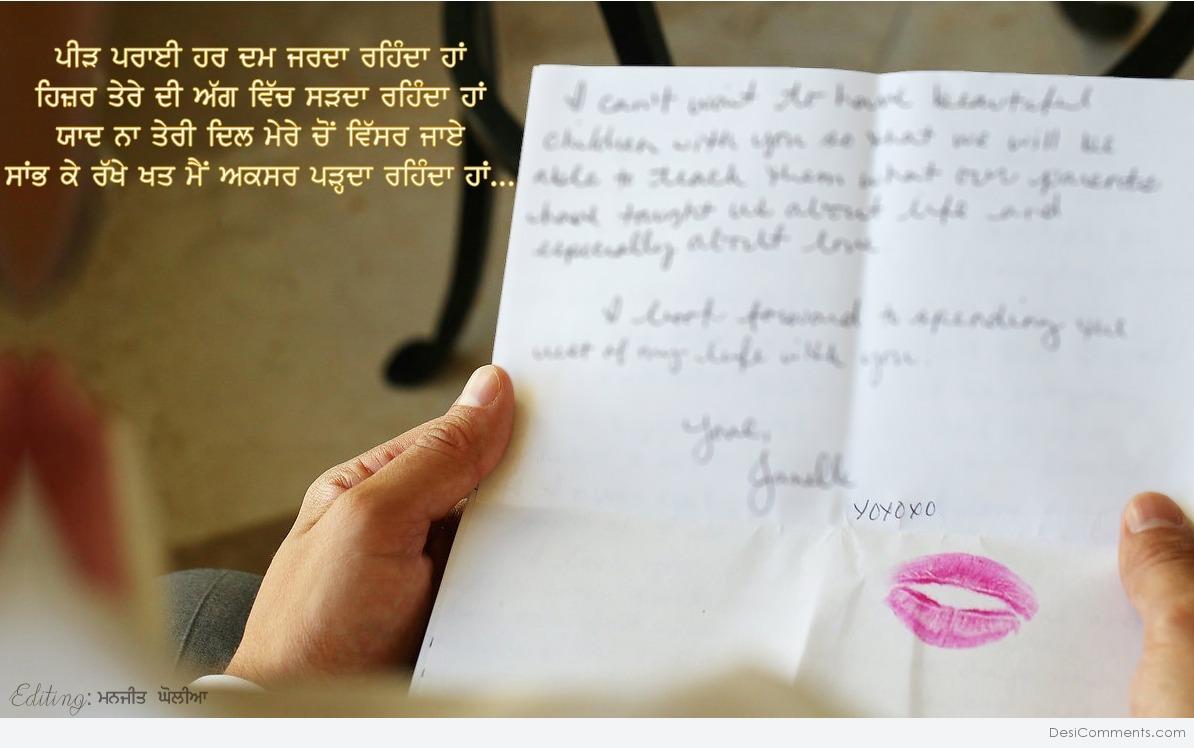 ਪੀੜ ਪਰਾਈ ਹਰ ਦਮ ਜਰਦਾ ਰਹਿੰਦਾ ਹਾਂ
ਹਿਜ਼ਰ ਤੇਰੇ ਦੀ ਅੱਗ ਵਿੱਚ ਸੜਦਾ ਰਹਿੰਦਾ ਹਾਂ
ਯਾਦ ਨਾ ਤੇਰੀ ਦਿਲ ਮੇਰੇ ਚੋਂ ਵਿੱਸਰ ਜਾਏ
ਸਾਂਭ ਕੇ ਰੱਖੇ ਖਤ ਮੈਂ ਅਕਸਰ ਪੜ੍ਹਦਾ ਰਹਿੰਦਾ ਹਾਂ...
I can't wait to have beautiful
children with you so what we will be
able to teach them what our parents
have taught us about life and
especially about love
I look forward to spending the
rest of my life with you.
YOYOXO
Editing: ਮਨਜੀਤ ਘੋਲੀਆ
DesiComments.com